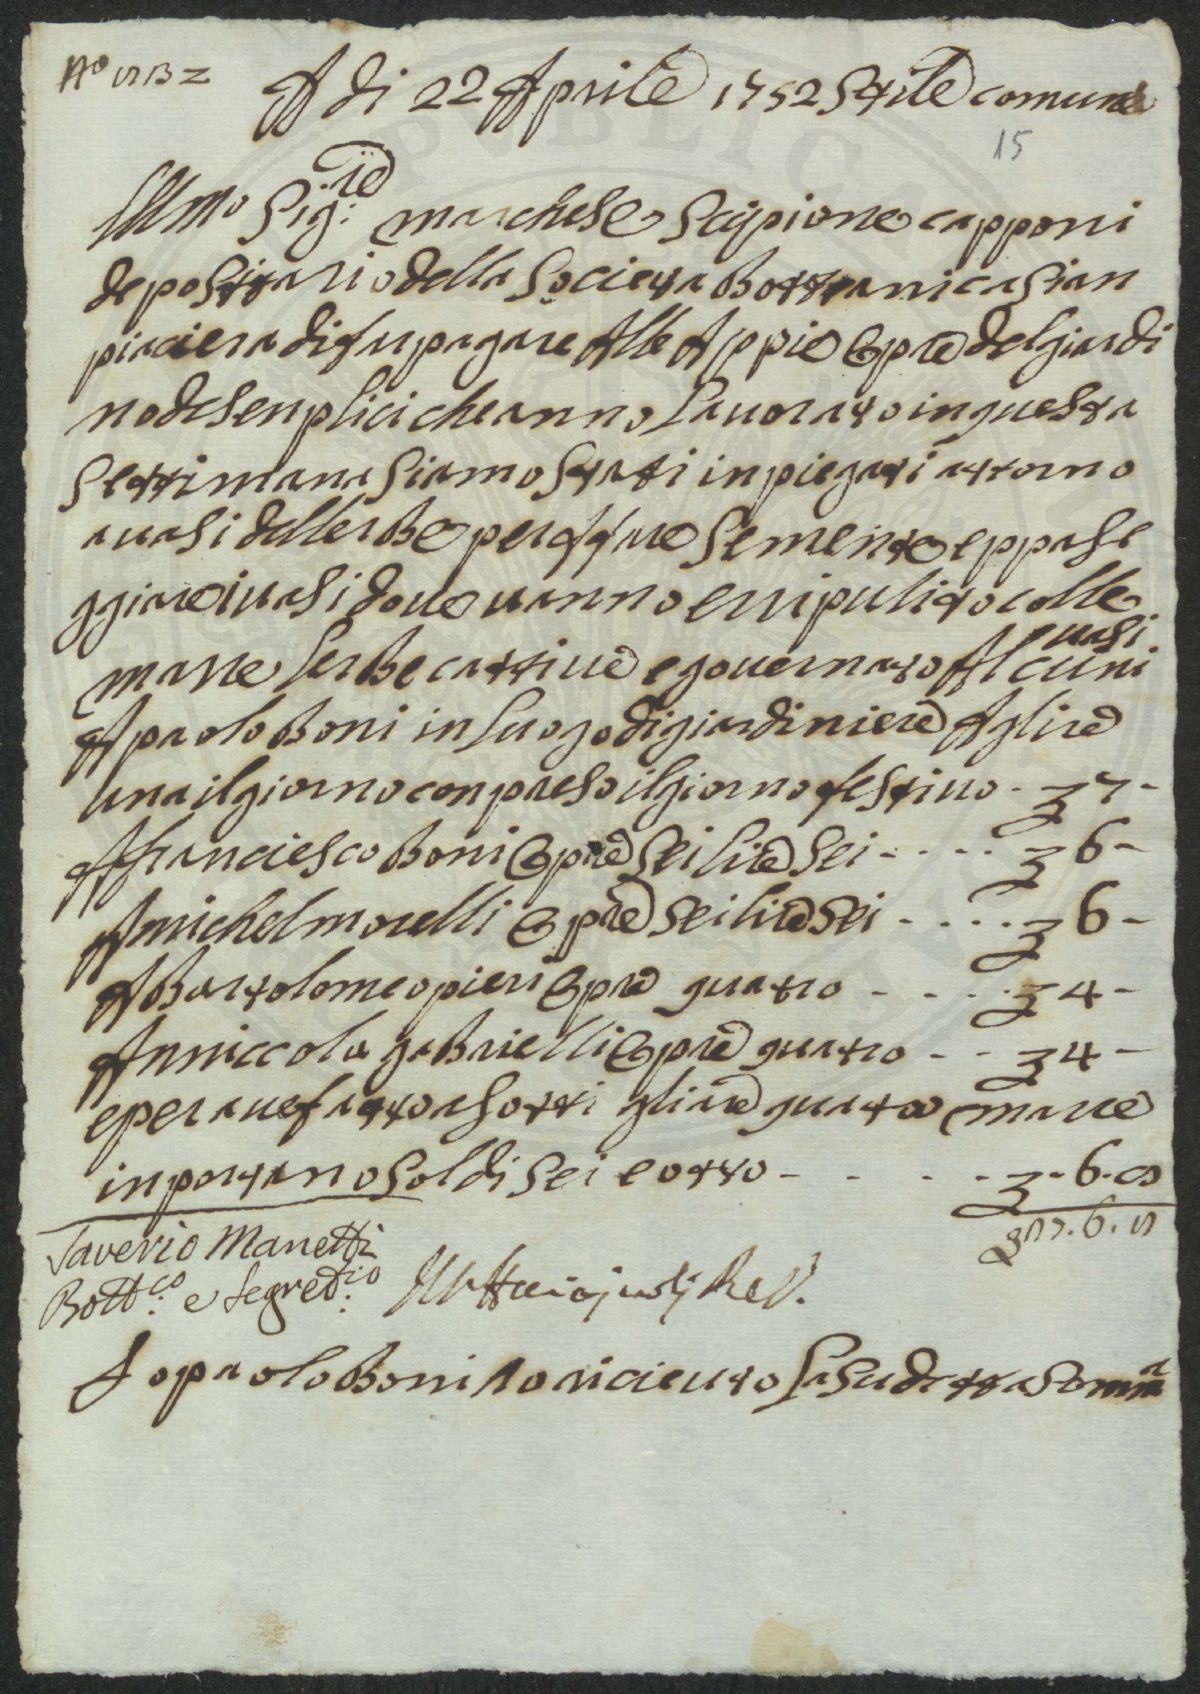 A di 22 Aprile 1752 Stile comune
15
Illmo Sig:re marchese Scipione capponi
depositario della Societa Bottanica Sian
piaciera di fu pagare Alle Appie Opre del giardi
no de Senplici che anno Lauorato in questa
settimana Siamo Stati inpiegati attorno
a uasi dellerBe per ffare Semente e ppase
ggiare i uasi doue uanno e rripulito colle
uasi
marre LerBe cattiue e gouernato Alcuni
A paolo Boni in luogo di giardiniere A lire
una il giorno conpreso il giorno festiuo - 7 -
A franciesco Boni Opre Sei lire Sei - - - - 6 -
A michel morelli Opre Sei lire Sei - - - - 6 -
A Bartolomeo pieri Opre quatro - - - - 4 -
A nniccola gaBrielli Opre quatro - - 4 -
e per auer fatto asotti gliare quatro marre
inportano Soldi Sei e otto - - - - - 6. 8
27. 6. 8
Saverio Manetti
Bott:co e Segret:rio
Io paolo Boni o riceuto La Sudetta Somma